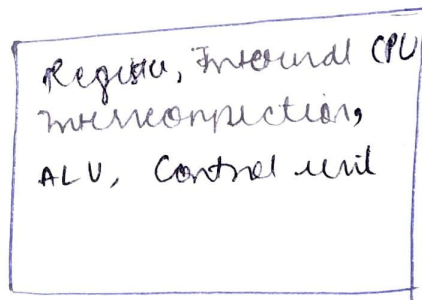 Register, Internal CPU
Interconnection,
ALU, Control unit